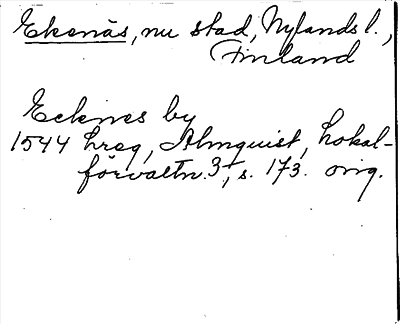 Ekenäs, nu stad, Nylands l.,
Finland
Ecknes by
1544 hreg, Almquist, Lokal-
förvaltn. 3, s. 173. orig.